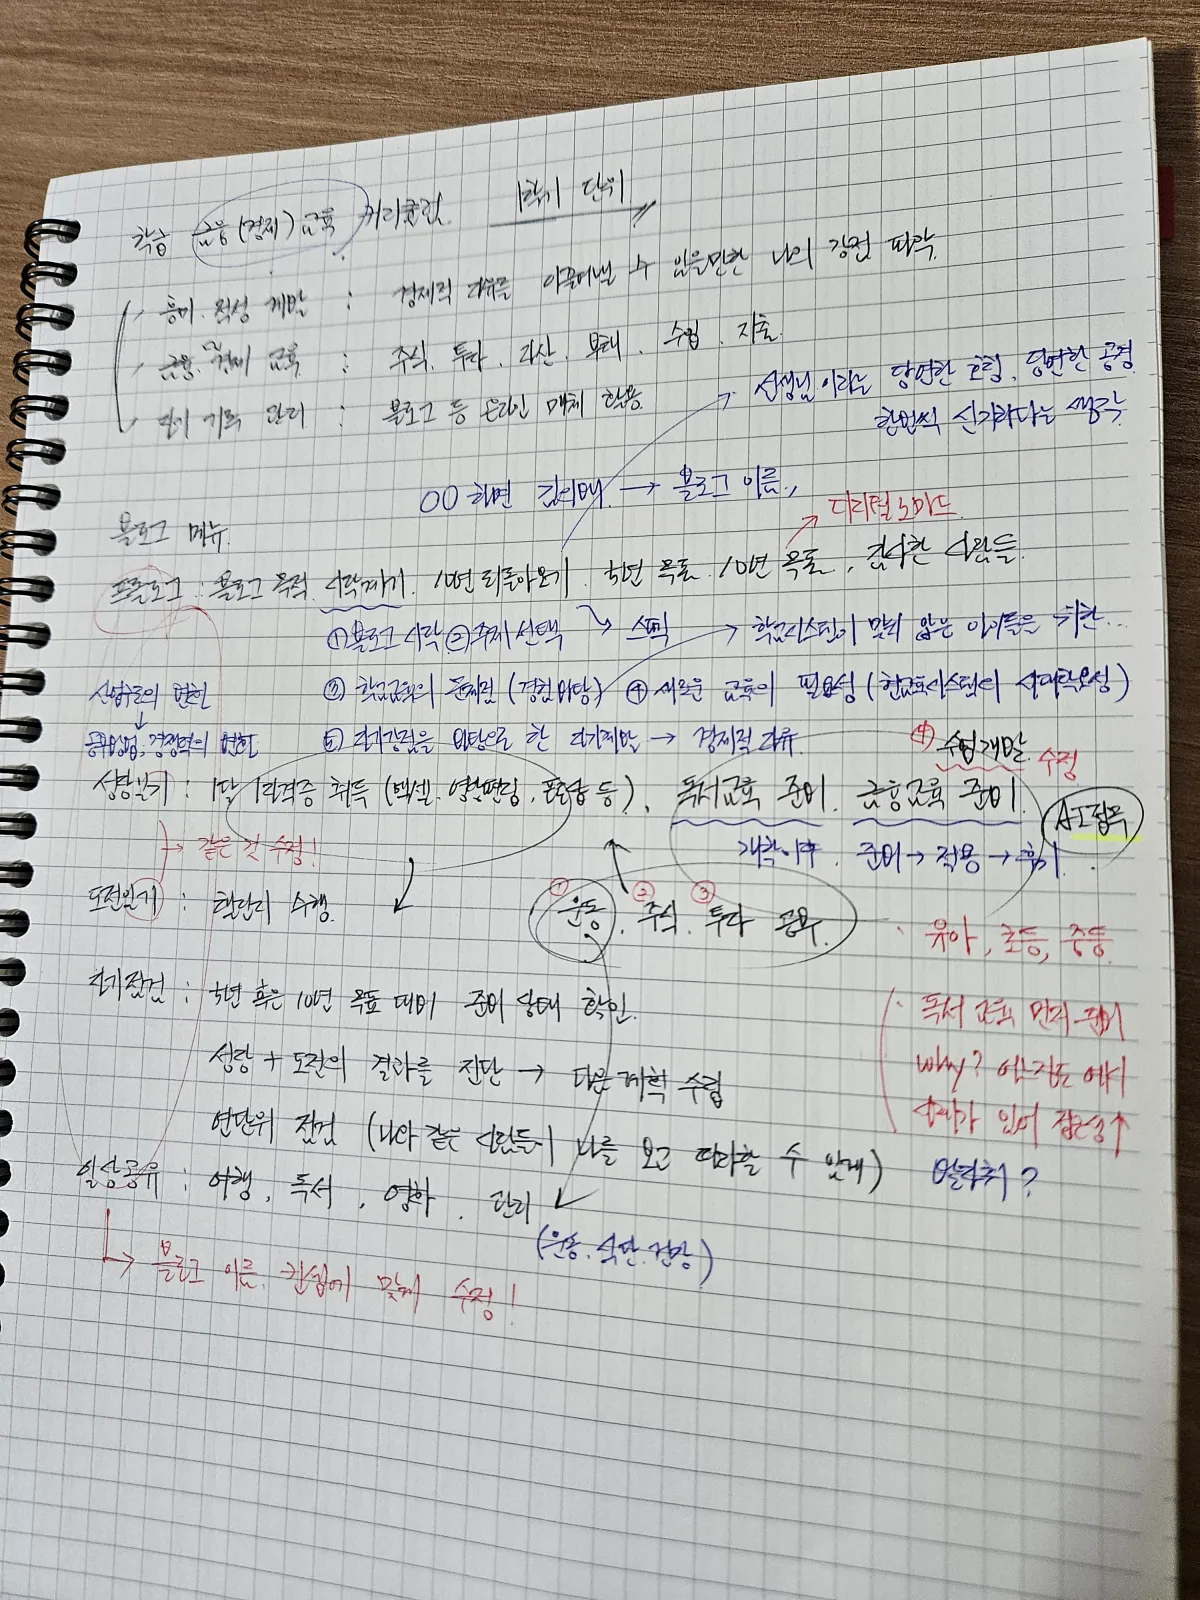 학습 금융(경제)교육 커리큘럼 1학기 단위
흥미.적성 계발 : 경제적 자유를 이끌어낼 수 있을만한 나의 강점 파악.
금융.경제 교육 : 주식. 투자. 자산. 부채. 수입. 지출.
자기 기록 관리 : 블로그 등 온라인 매체 활용.
→ 선생님이라는 당연한 호칭, 당연한 공경
한번씩 신기하다는 생각
○○하면 김이배 → 블로그 이름,
블로그 메뉴.
→ 디지털 노마드
프롤로그 : 블로그 목적. 시작계기. 10년 되돌아보기. 5년 목표. 10년 목표, 감사한 사람들.
①블로그 시작 ②주제 선택 → 스펙 → 학교시스템이 맞지 않은 아이들을 위한...
산업수요의 변화
③ 학교교육의 문제점 (경험바탕) ④ 새로운 교육의 필요성 (학교시스템의 시대착오성)
경쟁력의 변화
⑤ 자기강점을 바탕으로 한 자기계발 → 경제적 자유
④ 수업개발. 수정
성장일기 : 1달 1자격증 취득 (엑셀. 영상편집. 등). 독서교육 준비. 금융교육 준비.
AI접목
→ 같은 것 수정!
개학이후 준비→적용→후기.
도전일기 : 챌린지 수행.
① 운동. ② 주식. ③ 투자 공부.
· 유아, 초등, 중등
자기점검 : 5년 혹은 10년 목표 대비 준비 상태 확인.
· 독서 교육 먼저 준비
why? 어느정도 에서
성장 + 도전의 결과를 진단 → 다음 계획 수립
효과가 있어 접근성↑
연단위 점검 (나와 같은 사람들이 나를 보고 따라할 수 있게) 발자취?
일상공유 : 여행, 독서, 영화. 관리
(운동. 식단. 건강)
→ 블로그 이름. 컨셉에 맞게 수정!